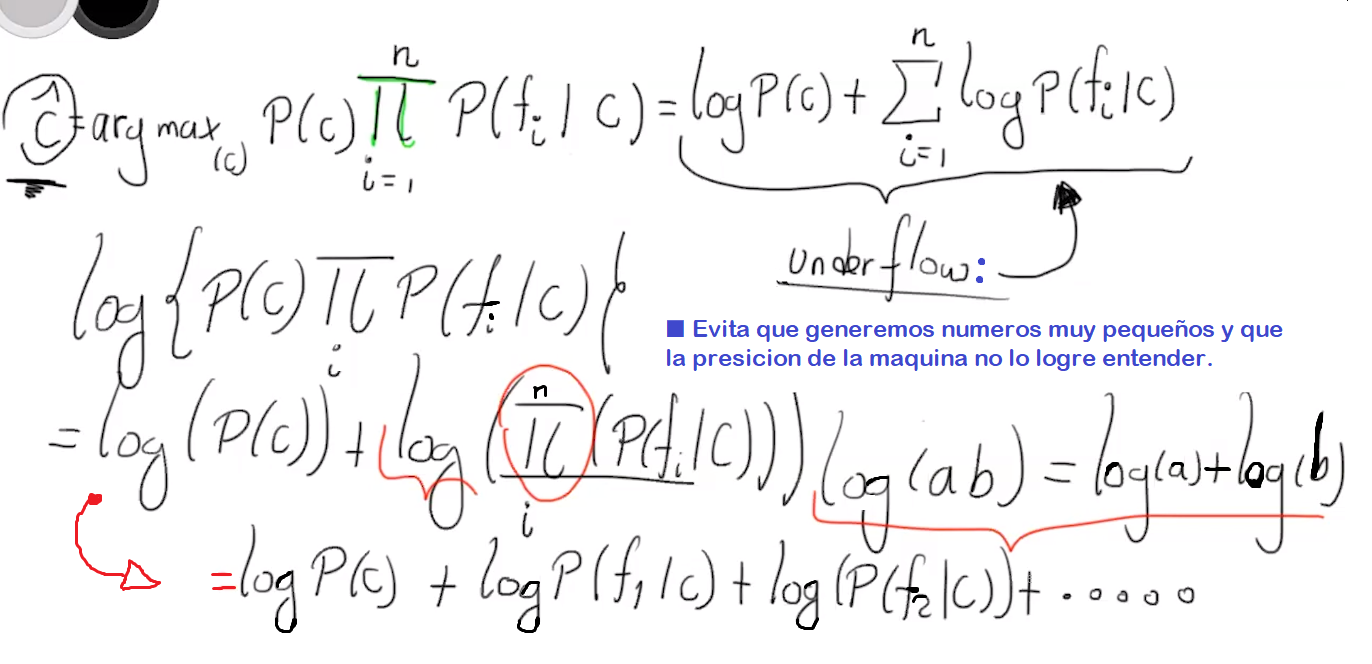 ĉ = arg max_(c) P(c) ∏_{i=1}^{n} P(f_i | C) = log P(c) + ∑_{i=1}^{n} log P(f_i | C)
underflow:
log { P(c) ∏_i P(f_i | C) }
■ Evita que generemos numeros muy pequeños y que
la presicion de la maquina no lo logre entender.
= log (P(c)) + log (∏_i^n (P(f_i | C)))
log (ab) = log (a) + log (b)
= log P(c) + log P(f_1 | c) + log (P(f_2 | C)) + . . . . .